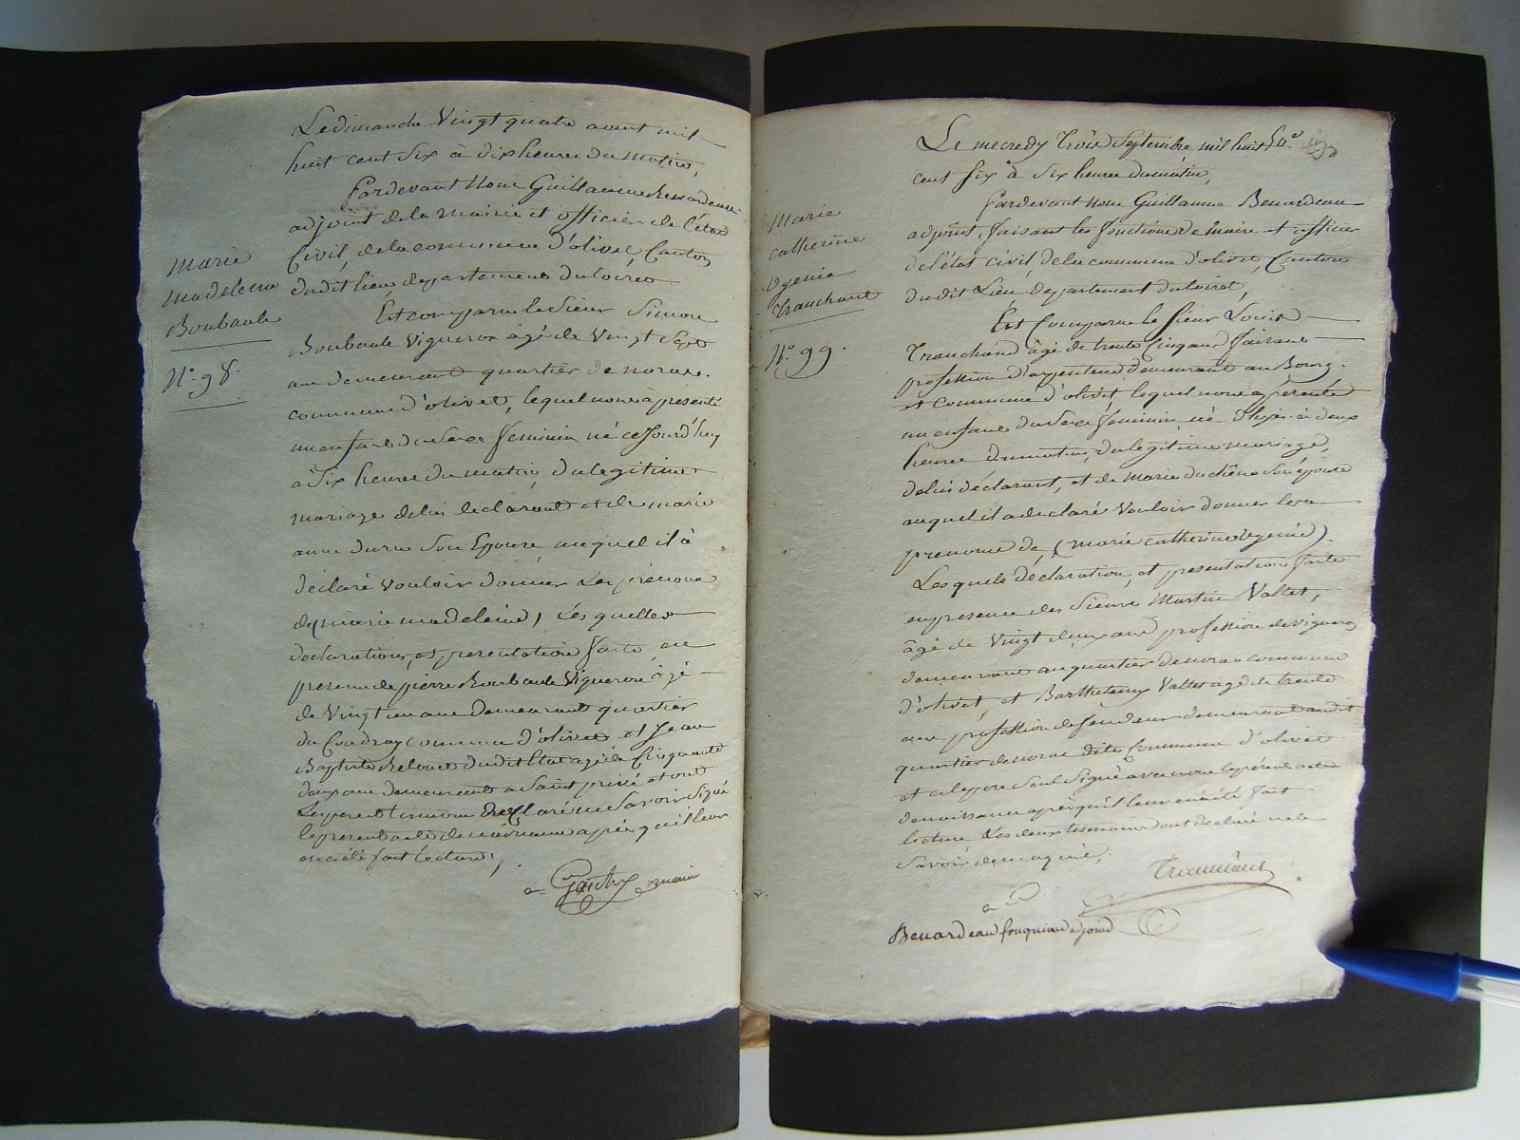 Le dimanche Vingt quatre aoust mil
huit cent Six à dix heures du matin,
Pardevant Nous Guillaume Benardeau
adjoint de la mairie et officier de l'état
Civil, de la commune d'olivet, Canton
dudit lieu, departement du loiret
Est comparu le Sieur Simon
Boubault Vigneron âgé de Vingt Sept
ans demeurant quartier de noras.
commune d'olivet, lequel nous à presenté
un enfant du Sexe feminin né cejourd'huy
à Six heures du matin, du legitime
mariage de lui declarant et de marie
anne Son Epouse auquel il à
déclaré vouloir donner Les prenoms
de marie madeleine, Lesquelles
declarations, et presentation faite en
presence de pierre Boubault Vigneron âgé
de Vingt un ans demeurant quartier
du Coudray commune d'olivet et Jean
Baptiste dudit Etat agé de Cinquante
deux ans demeurant a Saint privé et ont
Les pere et temoins declaré ne Savoir Signé
le present acte de naissance après qu'il leur
en a été fait Lecture,
marie
madeleine
Boubault
N.º 98.
Le mecredy Trois Septembre mil huit
cent Six à Six heures du matin,
Pardevant Nous Guillaume Benardeau
adjoint, faisant les fonctions de maire et officier
de l'état civil, de la commune d'olivet, Canton
dudit Lieu departement du loiret,
Est Comparu le Sieur Louis
Tranchand âgé de trente Cinq ans faisant
profession d'arpenteur demeurant au Bourg
et Commune d'olivet lequel nous à presenté
un enfant du Sexe feminin, né d'hyer à deux
heures du matin, du legitime mariage,
de lui déclarant, et de Marie duchêne Son épouse
auquel il a declaré Vouloir donner les
prenoms de (marie catherine ugenie).
Lesquels déclaration, et presentation faite
en presence des Sieurs Martin Vallet,
âgé de Vingt deux ans profession de Vigneron
demeurant au quartier de noras commune
d'olivet, et Barthelemy Vallet agé de trente
ans profession de demeurant audit
quartier de noras dite Commune d'olivet
et a le pere Seul Signé avec nous le présent acte
de naissance après qu'il leur en a été fait
lecture Les deux temoins ont declaré ne le
Savoir de ce requis,
Marie
catherine
Ugenie
Tranchant
N.º 99.
Tranchant
Benardeau